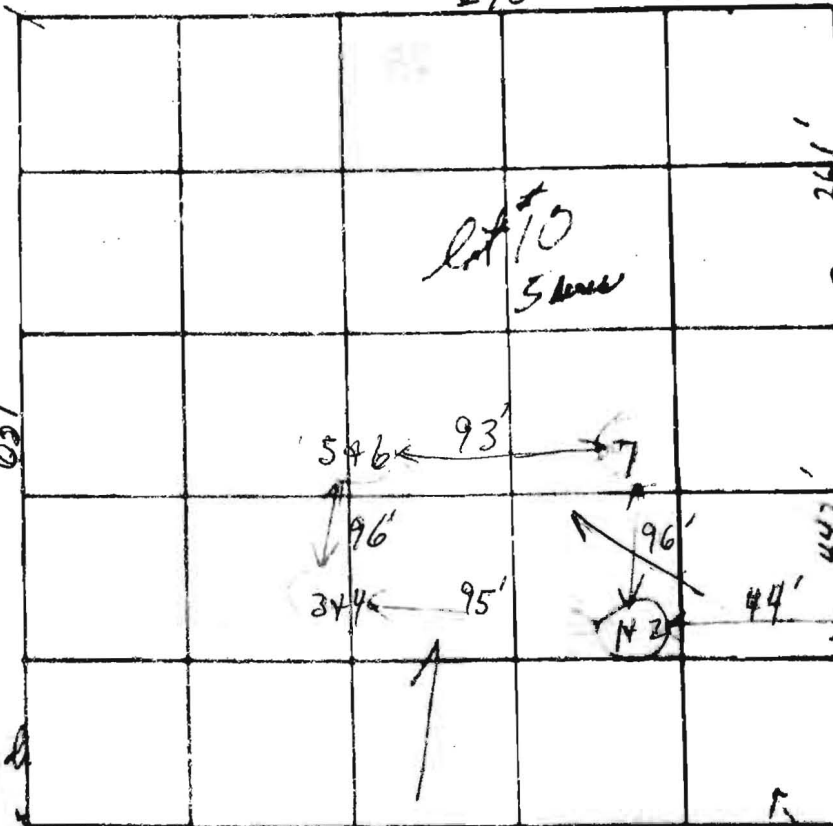 lot #10
5 acres
261'
5+6 93' 7
96' 96'
3+4 95' 1+2 44'